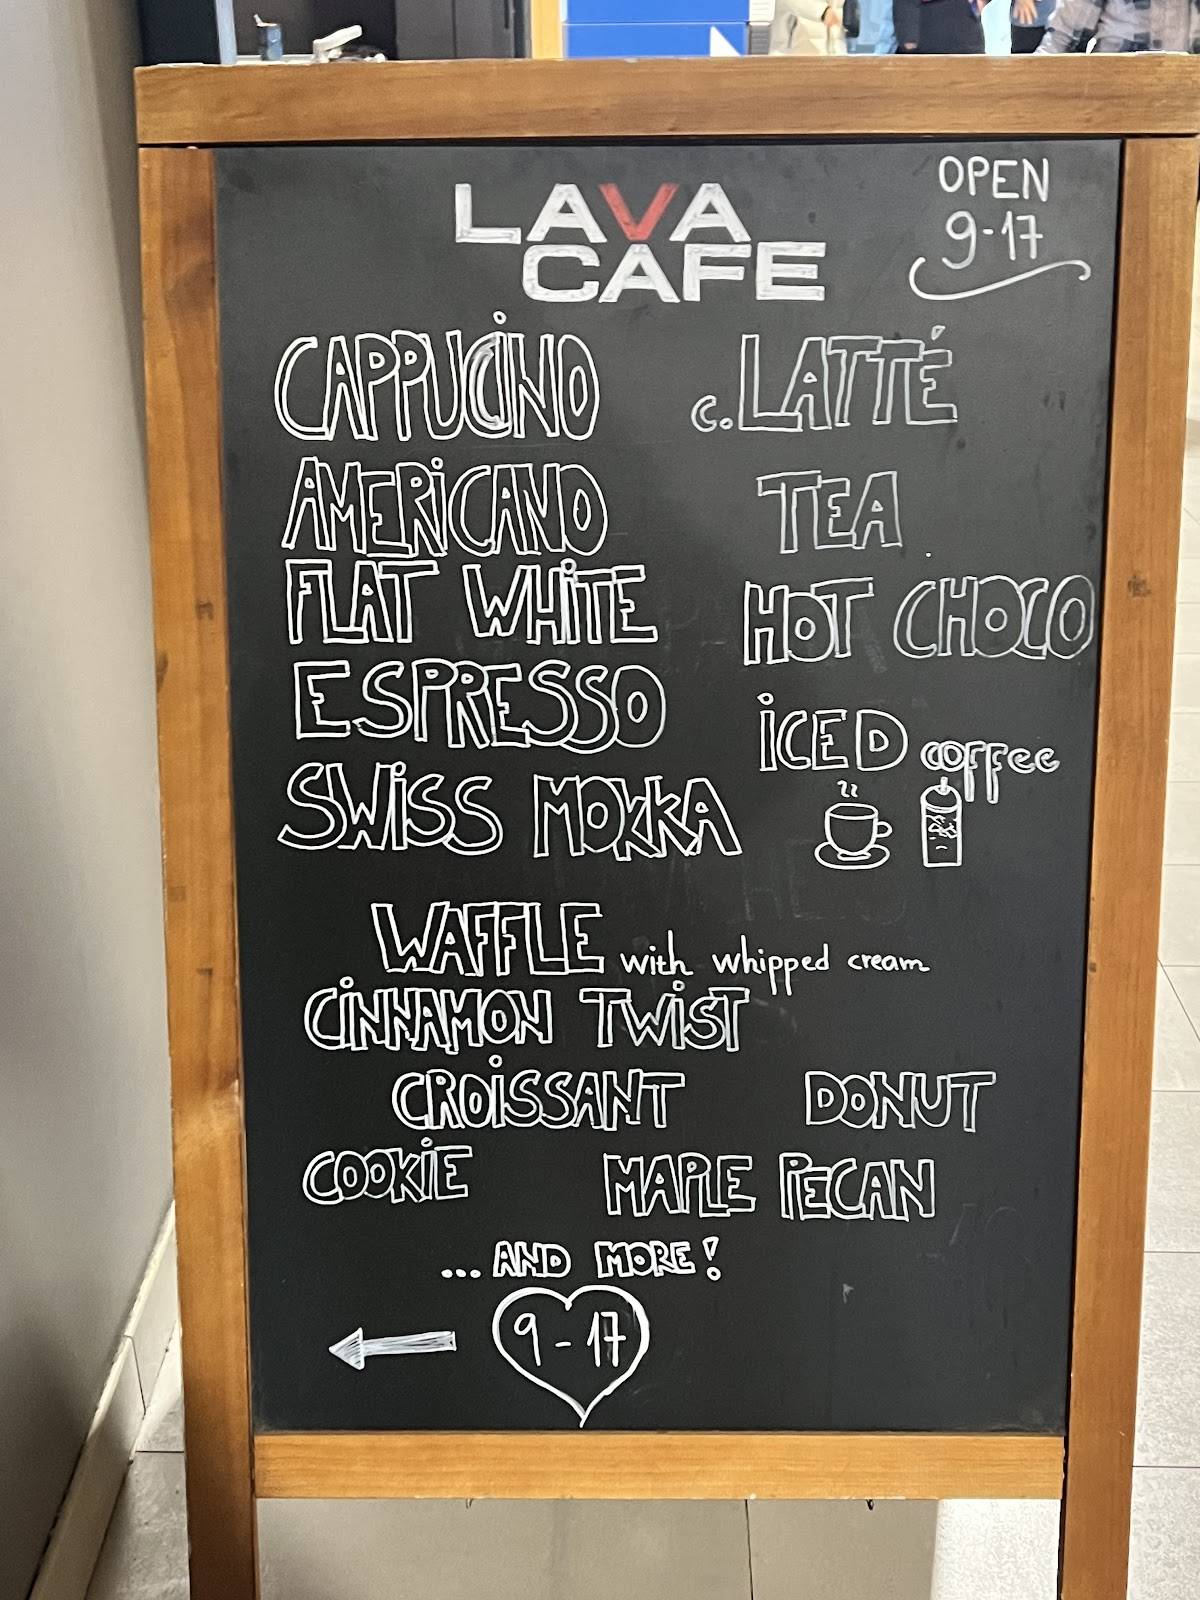 LAVA
CAFE
OPEN
9-17
CAPPUCINO
c.LATTÉ
AMERICANO
TEA
FLAT WHITE
HOT CHOCO
ESPRESSO
ICED coffee
SWISS MOKKA
WAFFLE with whipped cream
CINNAMON TWIST
CROISSANT DONUT
COOKIE MAPLE PECAN
...AND MORE!
9-17